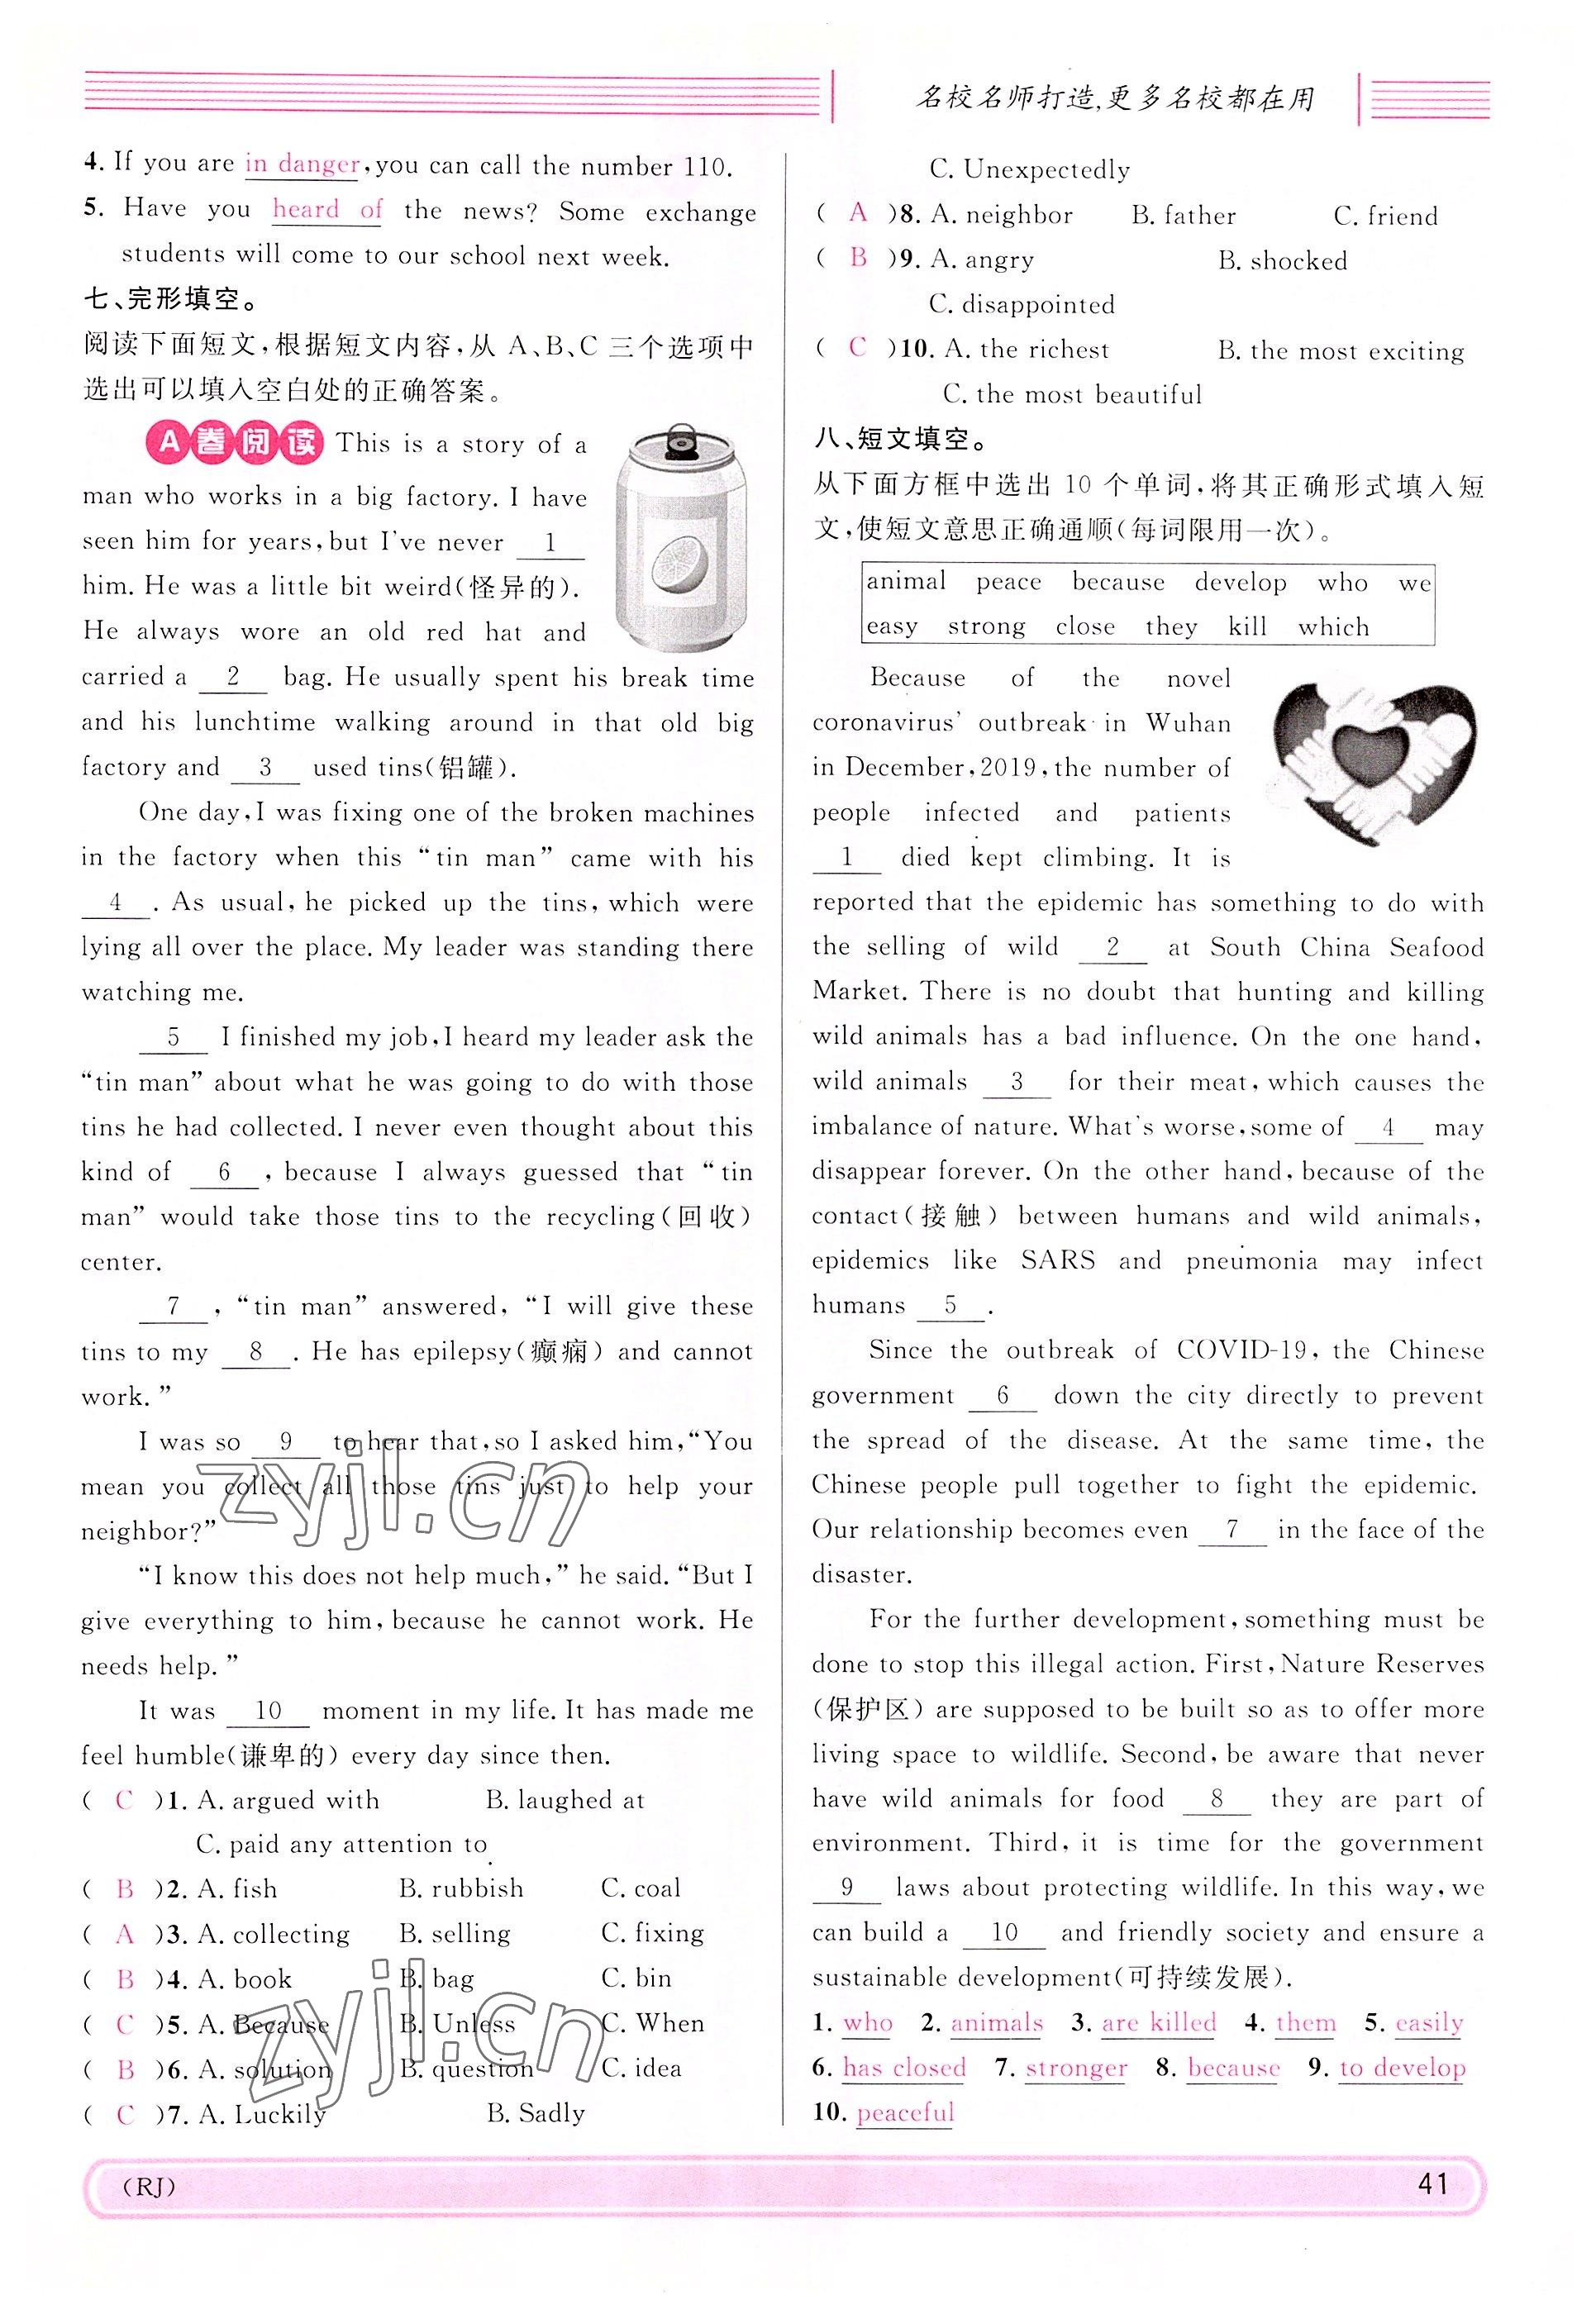 名校名师打造,更多名校都在用
4. If you are in danger, you can call the number 110.
5. Have you heard of the news? Some exchange
students will come to our school next week.
七、完形填空。
阅读下面短文,根据短文内容,从 A、B、C 三个选项中
选出可以填入空白处的正确答案。
A卷阅读 This is a story of a
man who works in a big factory. I have
seen him for years, but I've never 1
him. He was a little bit weird(怪异的).
He always wore an old red hat and
carried a 2 bag. He usually spent his break time
and his lunchtime walking around in that old big
factory and 3 used tins(铝罐).
One day, I was fixing one of the broken machines
in the factory when this “tin man” came with his
4 . As usual, he picked up the tins, which were
lying all over the place. My leader was standing there
watching me.
5 I finished my job, I heard my leader ask the
“tin man” about what he was going to do with those
tins he had collected. I never even thought about this
kind of 6 , because I always guessed that “tin
man” would take those tins to the recycling(回收)
center.
7 , “tin man” answered, “I will give these
tins to my 8 . He has epilepsy(癫痫) and cannot
work.”
I was so 9 to hear that, so I asked him, “You
mean you collect all those tins just to help your
neighbor?”
“I know this does not help much,” he said. “But I
give everything to him, because he cannot work. He
needs help.”
It was 10 moment in my life. It has made me
feel humble(谦卑的) every day since then.
( C )1. A. argued with B. laughed at
C. paid any attention to
( B )2. A. fish B. rubbish C. coal
( A )3. A. collecting B. selling C. fixing
( B )4. A. book B. bag C. bin
( C )5. A. Because B. Unless C. When
( B )6. A. solution B. question C. idea
( C )7. A. Luckily B. Sadly
C. Unexpectedly
( A )8. A. neighbor B. father C. friend
( B )9. A. angry B. shocked
C. disappointed
( C )10. A. the richest B. the most exciting
C. the most beautiful
八、短文填空。
从下面方框中选出 10 个单词,将其正确形式填入短
文,使短文意思正确通顺(每词限用一次)。
animal peace because develop who we
easy strong close they kill which
Because of the novel
coronavirus' outbreak in Wuhan
in December, 2019, the number of
people infected and patients
1 died kept climbing. It is
reported that the epidemic has something to do with
the selling of wild 2 at South China Seafood
Market. There is no doubt that hunting and killing
wild animals has a bad influence. On the one hand,
wild animals 3 for their meat, which causes the
imbalance of nature. What's worse, some of 4 may
disappear forever. On the other hand, because of the
contact(接触) between humans and wild animals,
epidemics like SARS and pneumonia may infect
humans 5 .
Since the outbreak of COVID-19, the Chinese
government 6 down the city directly to prevent
the spread of the disease. At the same time, the
Chinese people pull together to fight the epidemic.
Our relationship becomes even 7 in the face of the
disaster.
For the further development, something must be
done to stop this illegal action. First, Nature Reserves
(保护区) are supposed to be built so as to offer more
living space to wildlife. Second, be aware that never
have wild animals for food 8 they are part of
environment. Third, it is time for the government
9 laws about protecting wildlife. In this way, we
can build a 10 and friendly society and ensure a
sustainable development(可持续发展).
1. who 2. animals 3. are killed 4. them 5. easily
6. has closed 7. stronger 8. because 9. to develop
10. peaceful
zyjl.cn
zyjl.cn
(RJ)
41